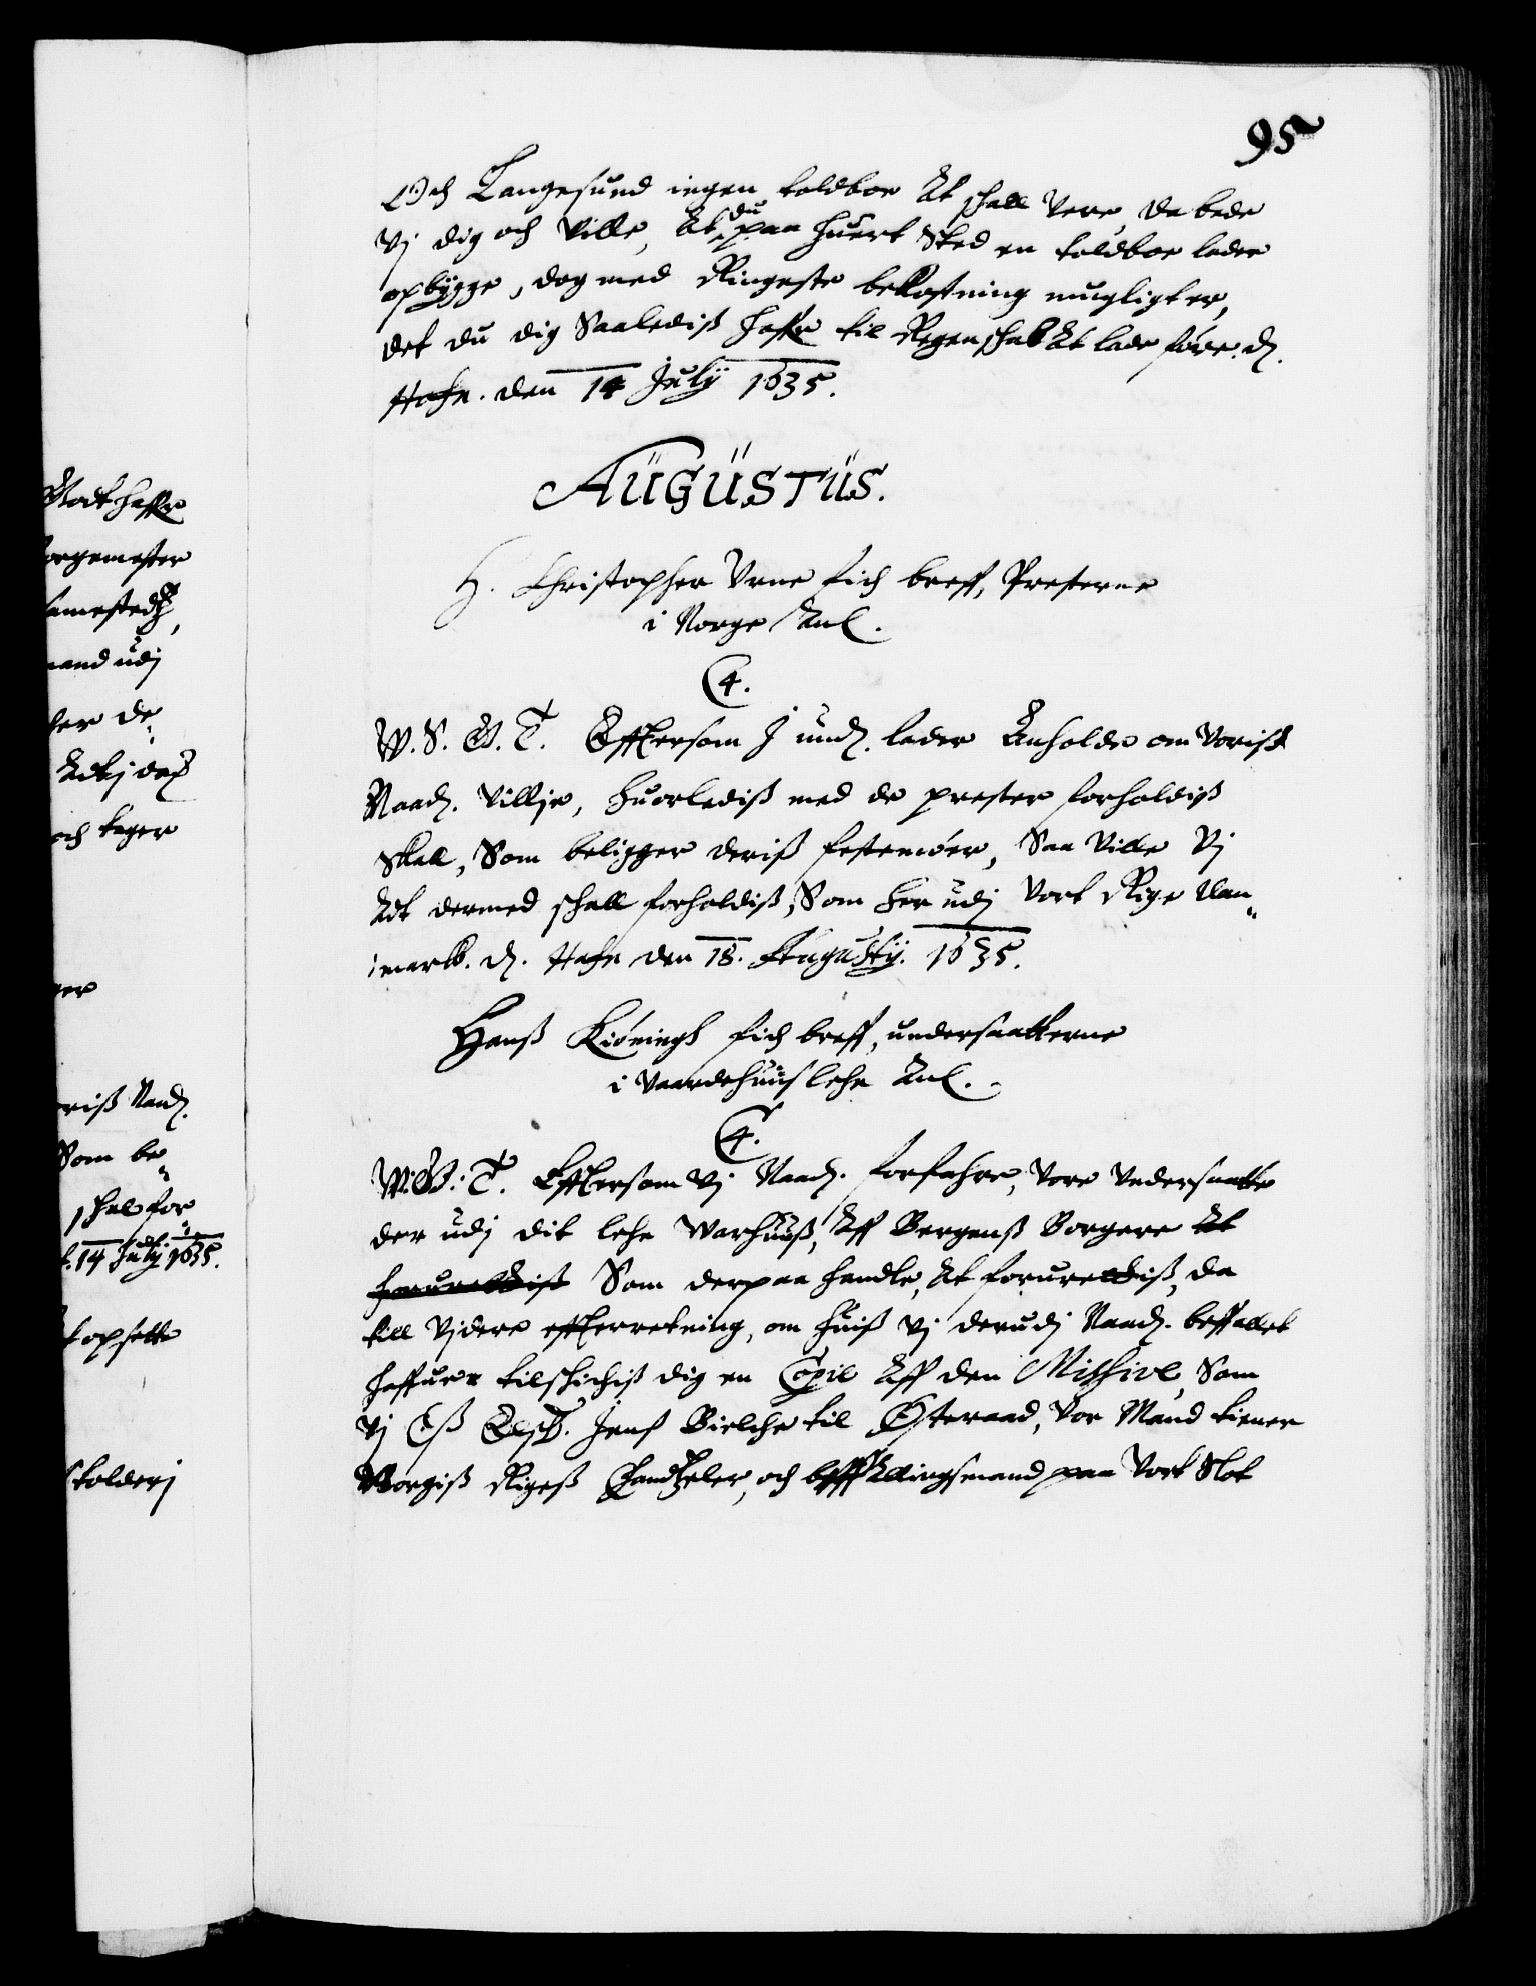 95
Och Langesund ingen toldboe At schall Vere, da bede
Vj dig och Ville, At du paa huert Sted en toldboe lader
opbygge, dog med Ringeste bekostning mugligt er,
det du dig Saaledis haffr til Regenschab At lade føre. D.
Hafn. den 14 July 1635.
AÜGÜSTÜS.
H. Christopher Vrne fich breff, Presterne
i Norge Anl.
C4.
W. S. G. T. Efftersom J und. lader Anholde om Voriß
Naad. Villje, huorlediß med de prester forholdiß
Skall, Som beligger deriß festemøer, Saa Ville Vj
Att dermed schall forholdiß, Som her udj Vort Rige Dan„
:mark. D. Hafn den 18. Augustij. 1635.
Hanß Kiøningh fich breff, undersaatterne
i Vaardehuus lehn Anl.
C4.
W: G: T. Efftersom Vj Naad. forfahre, Vore Vndersaatte
der udj dit lehn Warhuuß, Aff Bergenß Borgere At
foruretttist Som derpaa handle, At forurettiß, da
till Vjdere effterretning, om huiß Vj derudj Naad. beffallet
haffuer tilschichiß dig en Copie Aff den Missive, Som
Vj Oß Elsk. Jens Bielche til Østeraad, Vor Mand tiener
Norgiß Rigeß Cantzeler, och beffallingsmand paa Vort Slot
Vort haffr
orgemester
samestedtz,
mand udj
ter de„
Adtj dep
och tager
ger
riß Naad.
Som be„
schal for„
t. 14 July 1635.
t opsette
toldery